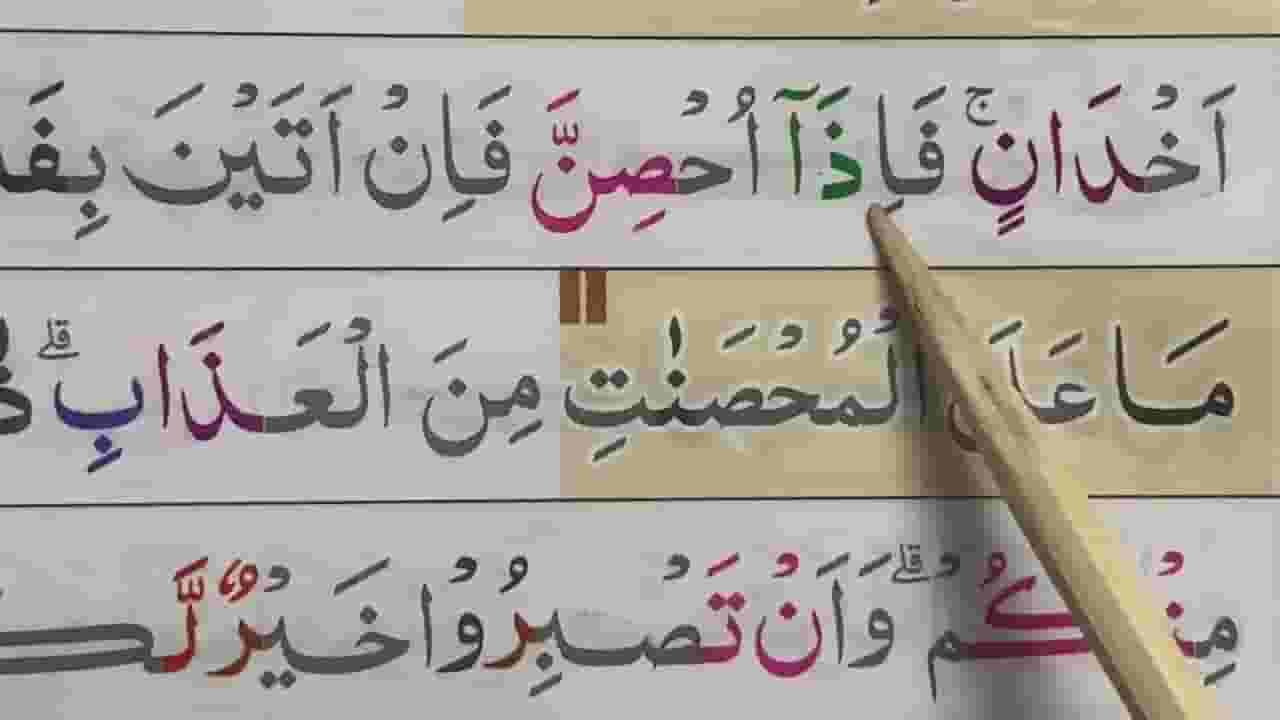 اَخْدَانٍ ۚ فَاِذَآ اُحْصِنَّ فَاِنْ اَتَيْنَ بِفَ
مَا عَلَى الْمُحْصَنٰتِ مِنَ الْعَذَابِ ؕ ذٰ
مِنْكُمْ ؕ وَاَنْ تَصْبِرُوْا خَيْرٌ لَّك